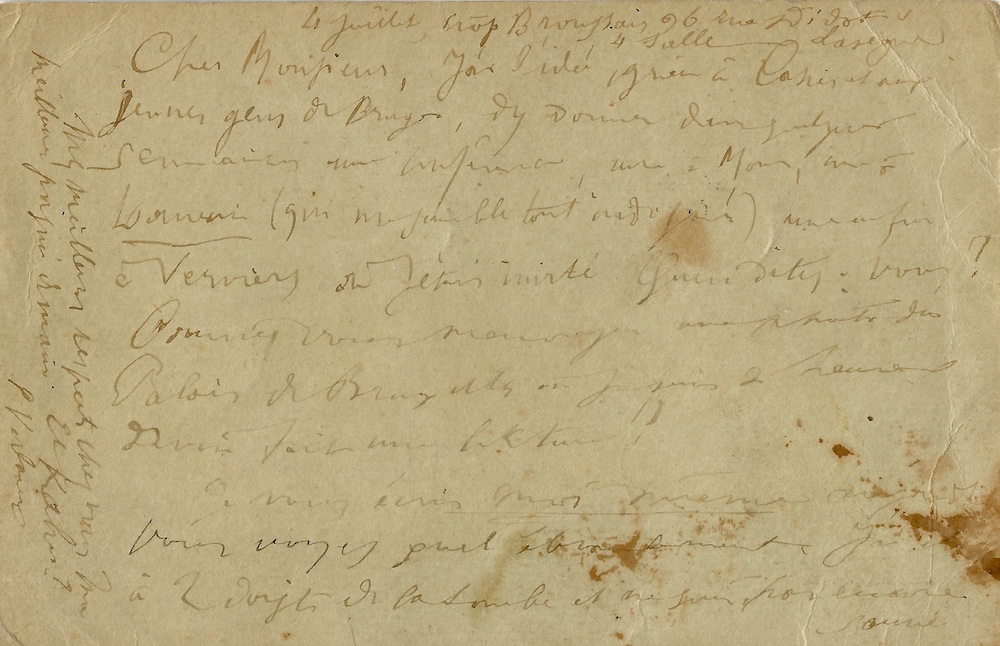 4 juillet, hôp Broussais, 96 rue Didot
4 Salle Lasègue
Cher Monsieur, J'ai l'idée, grâce à et aux
jeunes gens de Bruges, d'y donner dans quelques
semaines une conférence, une à Mons, une à
Louvain (qui me semble tout indiqué) une enfin
à Verviers où j'étais invité Qu'en dites-vous?
Pourriez vous m'envoyer une photo du
Palais de Brux elles où je suis si heureux
d'avoir fait une lecture!!
Je vous écris moi même
Vous voyez quel Je
à 2 doigts de la tombe et ne suis pas encore
sauvé
Mes meilleurs respects chez vous. Ma
meilleure poignée de main. Et Kahn?
P Verlaine